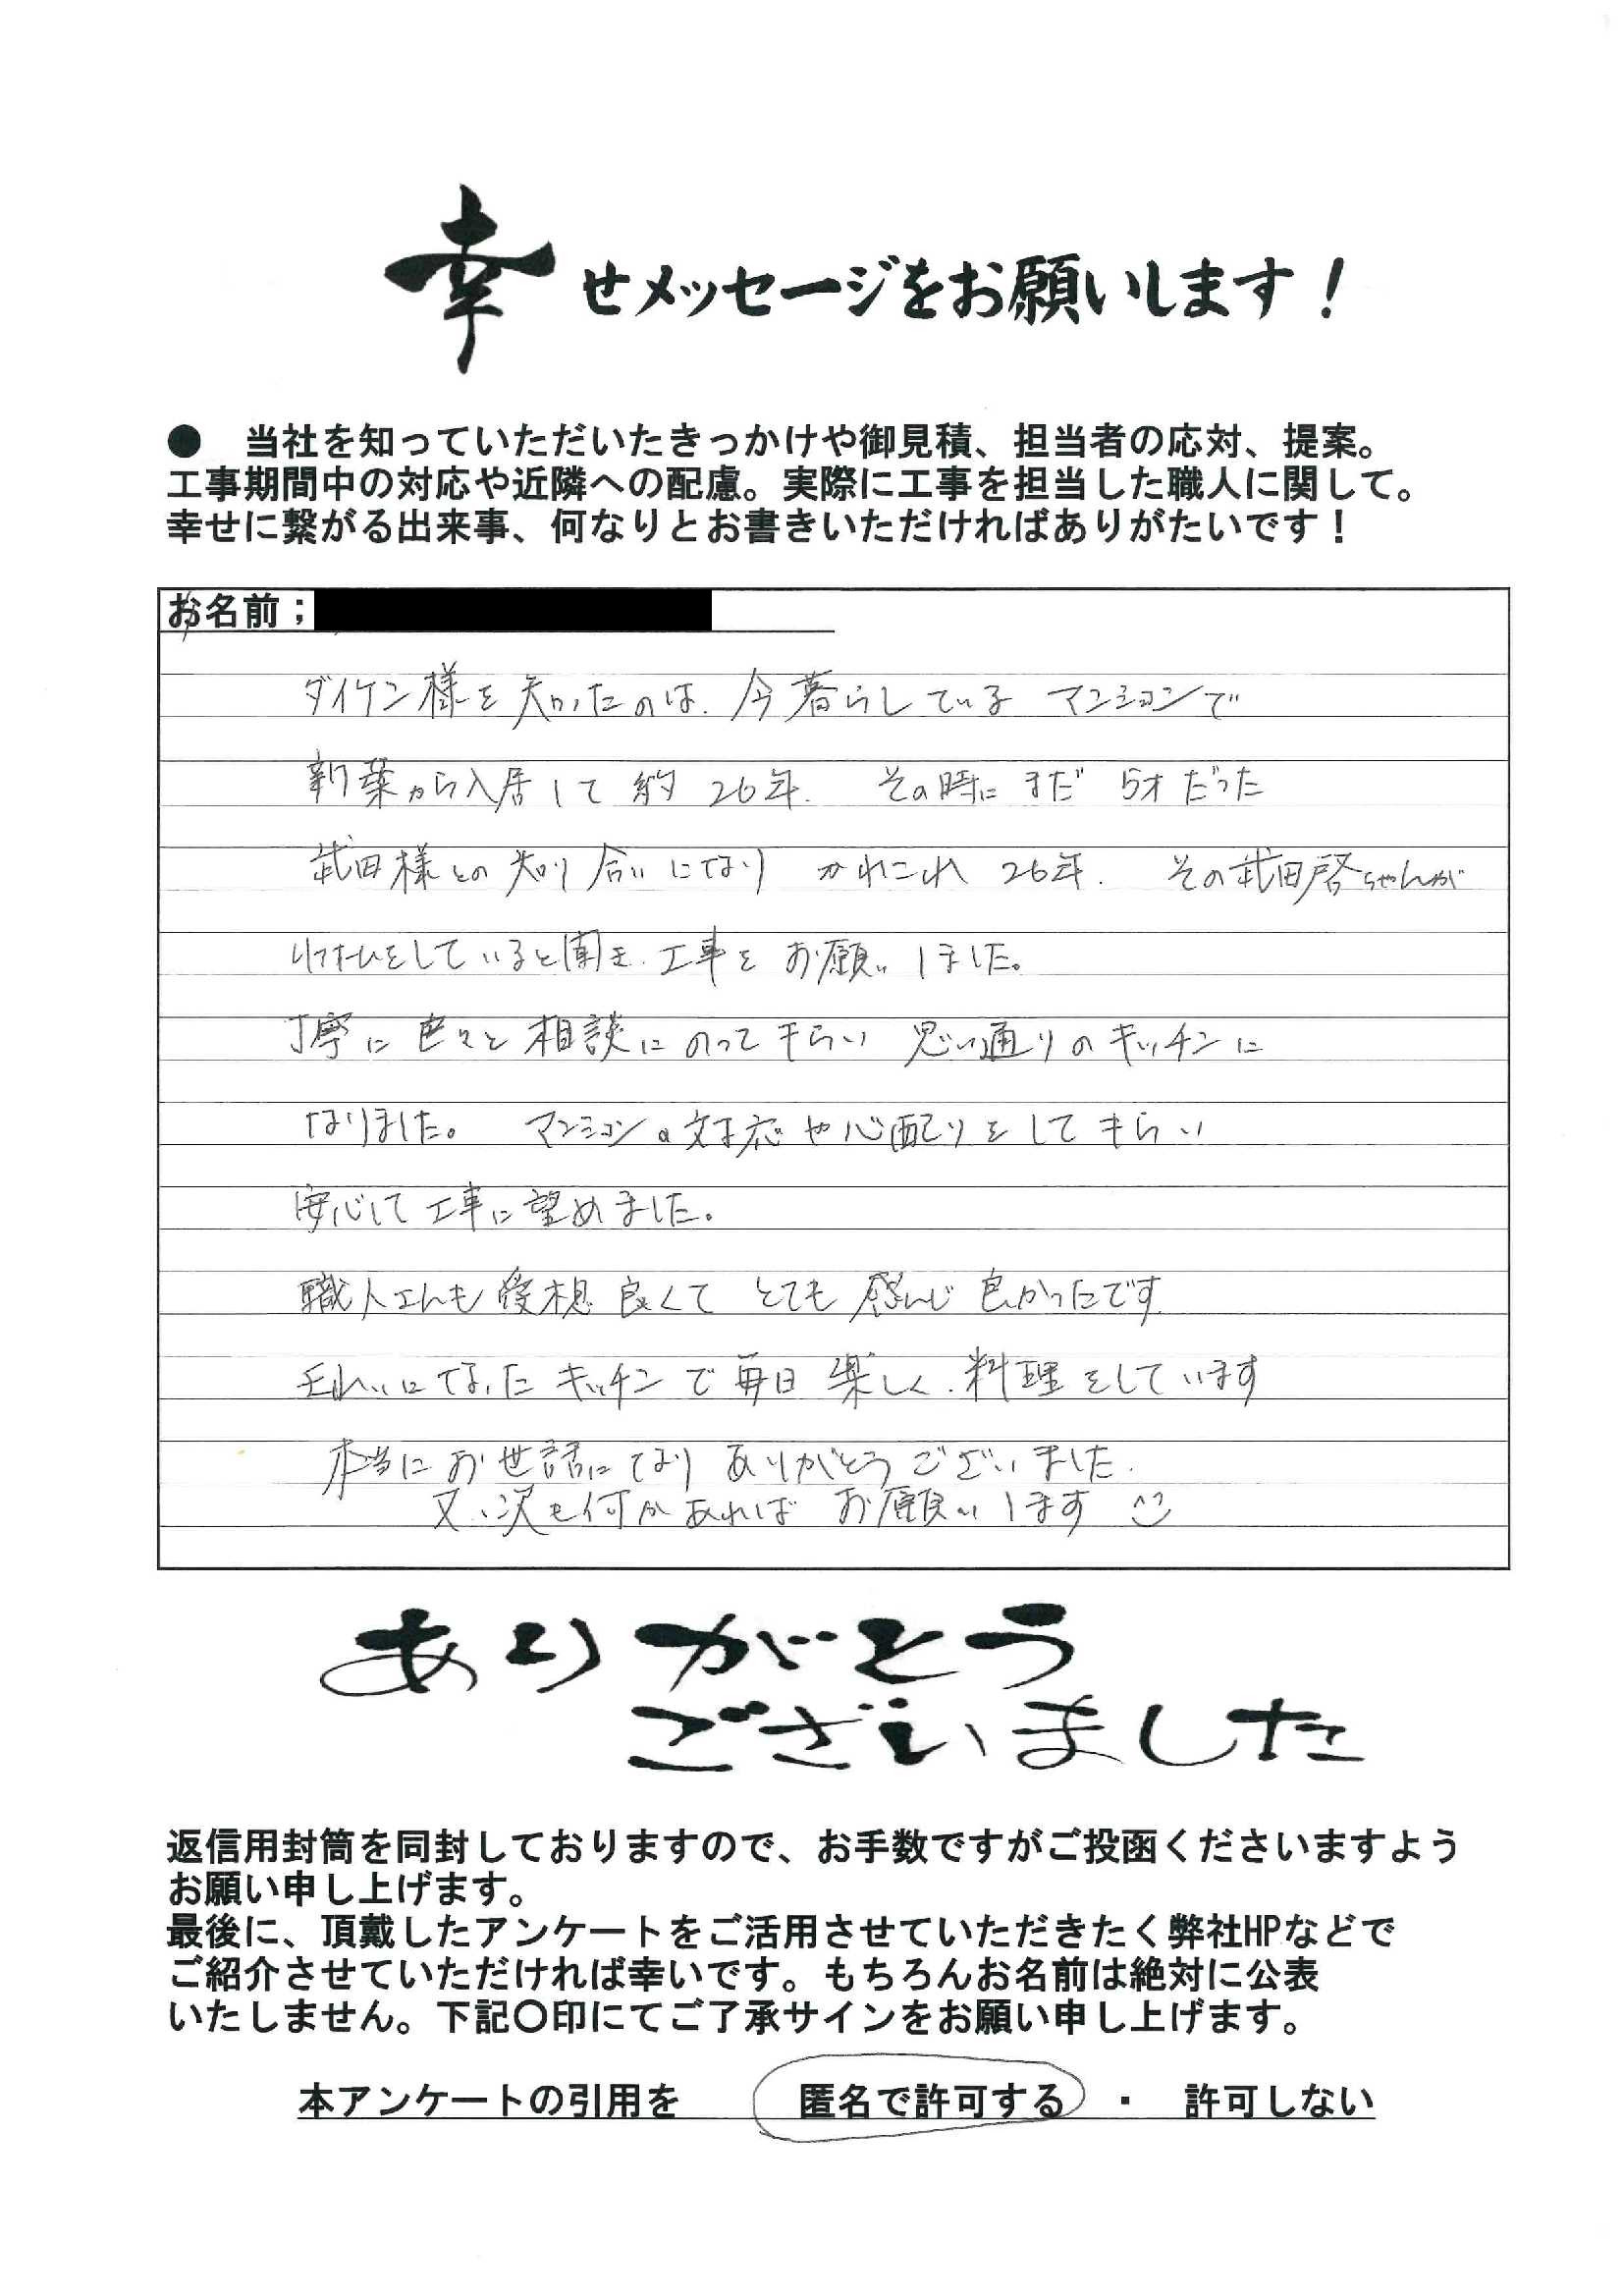 幸せメッセージをお願いします！
● 当社を知っていただいたきっかけや御見積、担当者の応対、提案。
工事期間中の対応や近隣への配慮。実際に工事を担当した職人に関して。
幸せに繋がる出来事、何なりとお書きいただければありがたいです！
お名前；
ダイケン様を知ったのは、今暮らしている マンションで
新築から入居して 約 26年. その時に まだ 5才だった
武田様との知り合いになり かれこれ 26年. その武田啓ちゃんが
リフォームをしていると聞き、工事を お願いしました。
丁寧に 色々と 相談に のってもらい 思い通りの キッチンに
なりました。 マンションの対応や心配りをしてもらい
安心して 工事に望めました。
職人さんも 愛想 良くて とても 感んじ 良かったです
きれいになった キッチンで 毎日 楽しく、料理をしています
本当に お世話になり ありがとうございました.
又、次も何かあれば お願いします
ありがとう
ございました
返信用封筒を同封しておりますので、お手数ですがご投函くださいますよう
お願い申し上げます。
最後に、頂戴したアンケートをご活用させていただきたく弊社HPなどで
ご紹介させていただければ幸いです。もちろんお名前は絶対に公表
いたしません。下記〇印にてご了承サインをお願い申し上げます。
本アンケートの引用を 匿名で許可する ・ 許可しない